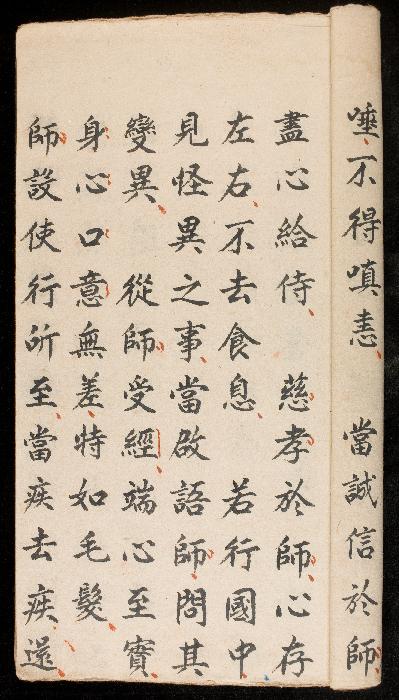 唾不得嗔恚　當誠信於師
盡心給侍　慈孝於師心存
左右不去食息　若行國中
見怪異之事當啟語師問其
變異　從師受經端心至實
身心口意無差特如毛髮
師設使行所至當疾去疾還